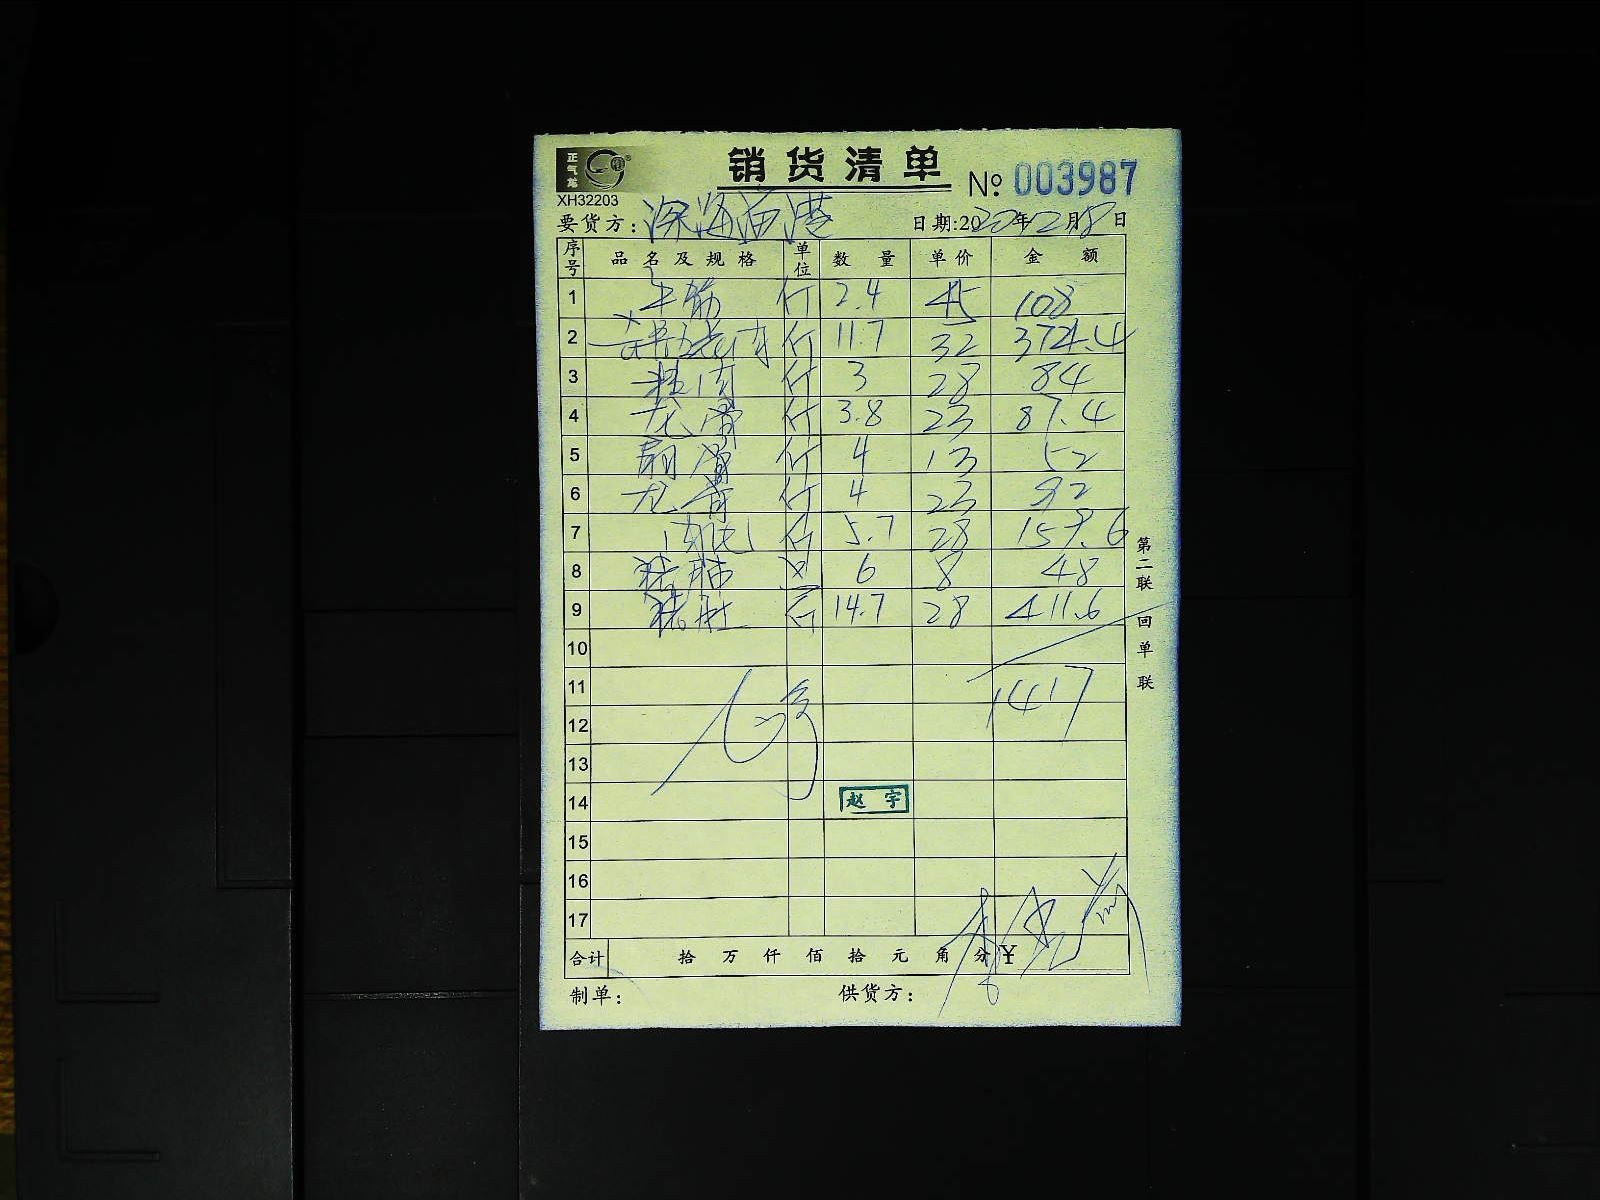 正气龙
销货清单 № 003987
XH32203
要货方: 深海西港 日期:2020年12月8日
序号 品名及规格 单位 数量 单价 金额
1 牛筋 斤 2.4 45 108
2 斤 11.7 32 374.4
3 肉 斤 3 28 84
4 龙骨 斤 3.8 23 87.4
5 扇骨 斤 4 13 52
6 龙骨 斤 4 23 92
7 斤 5.7 28 159.6
8 猪 只 6 8 48
9 猪肚 斤 14.7 28 411.6
10
11 1417
12
13
14 赵宇
15
16
17
合计 拾 万 仟 佰 拾 元 角 分 ¥
制单: 供货方:
第二联 回单联